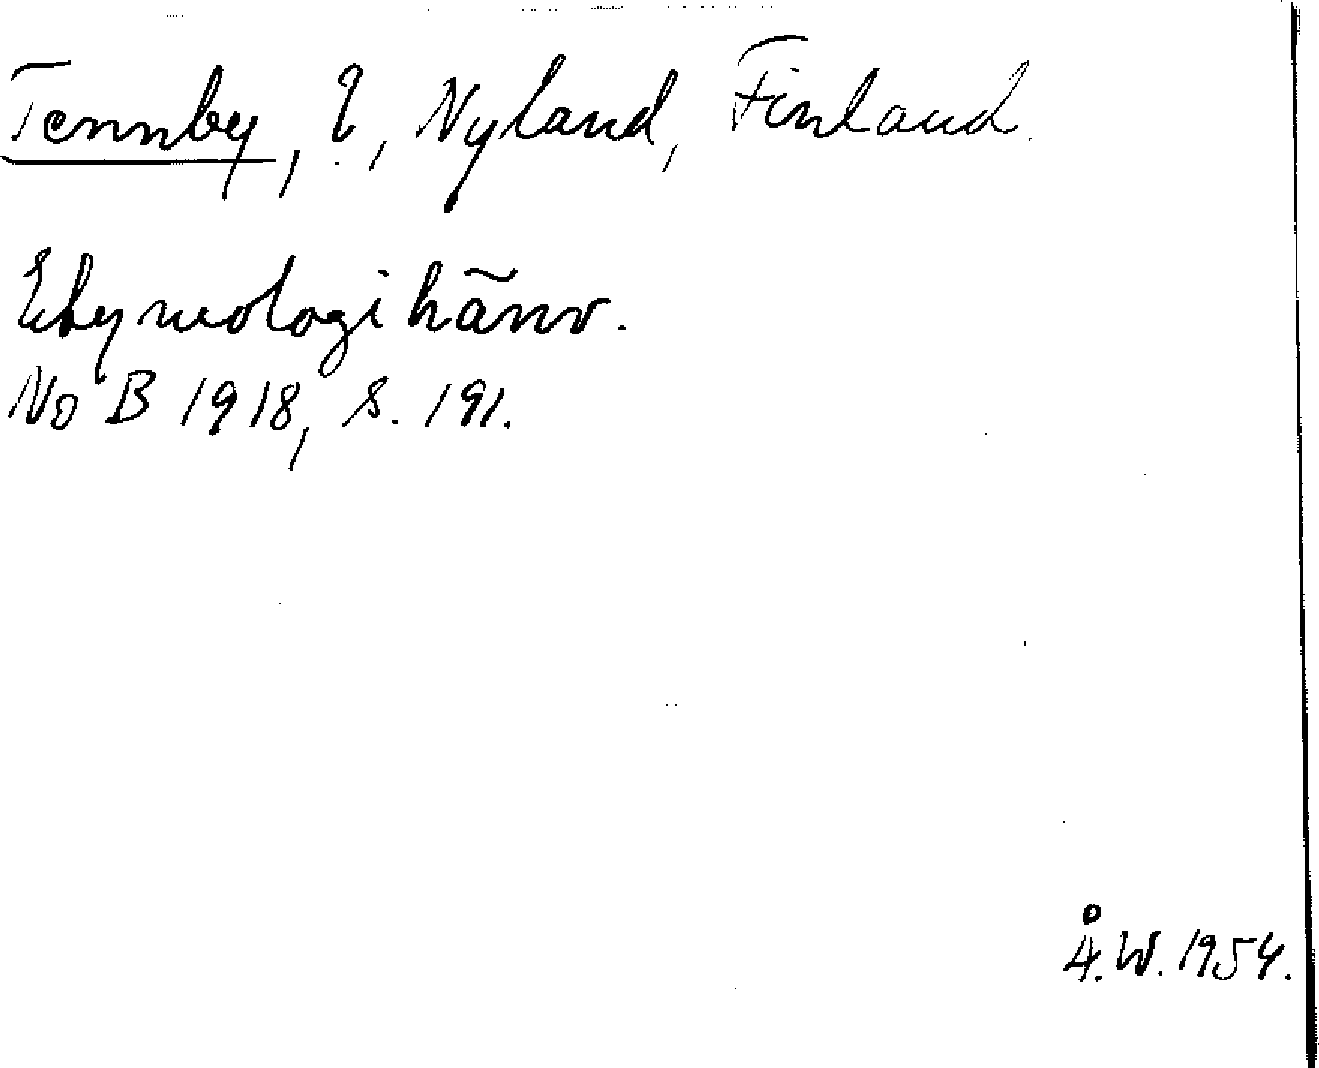 Tennby, ?, Nyland, Finland.
Etymologihänv.
NoB 1918, s. 191.
Å.W. 1954.